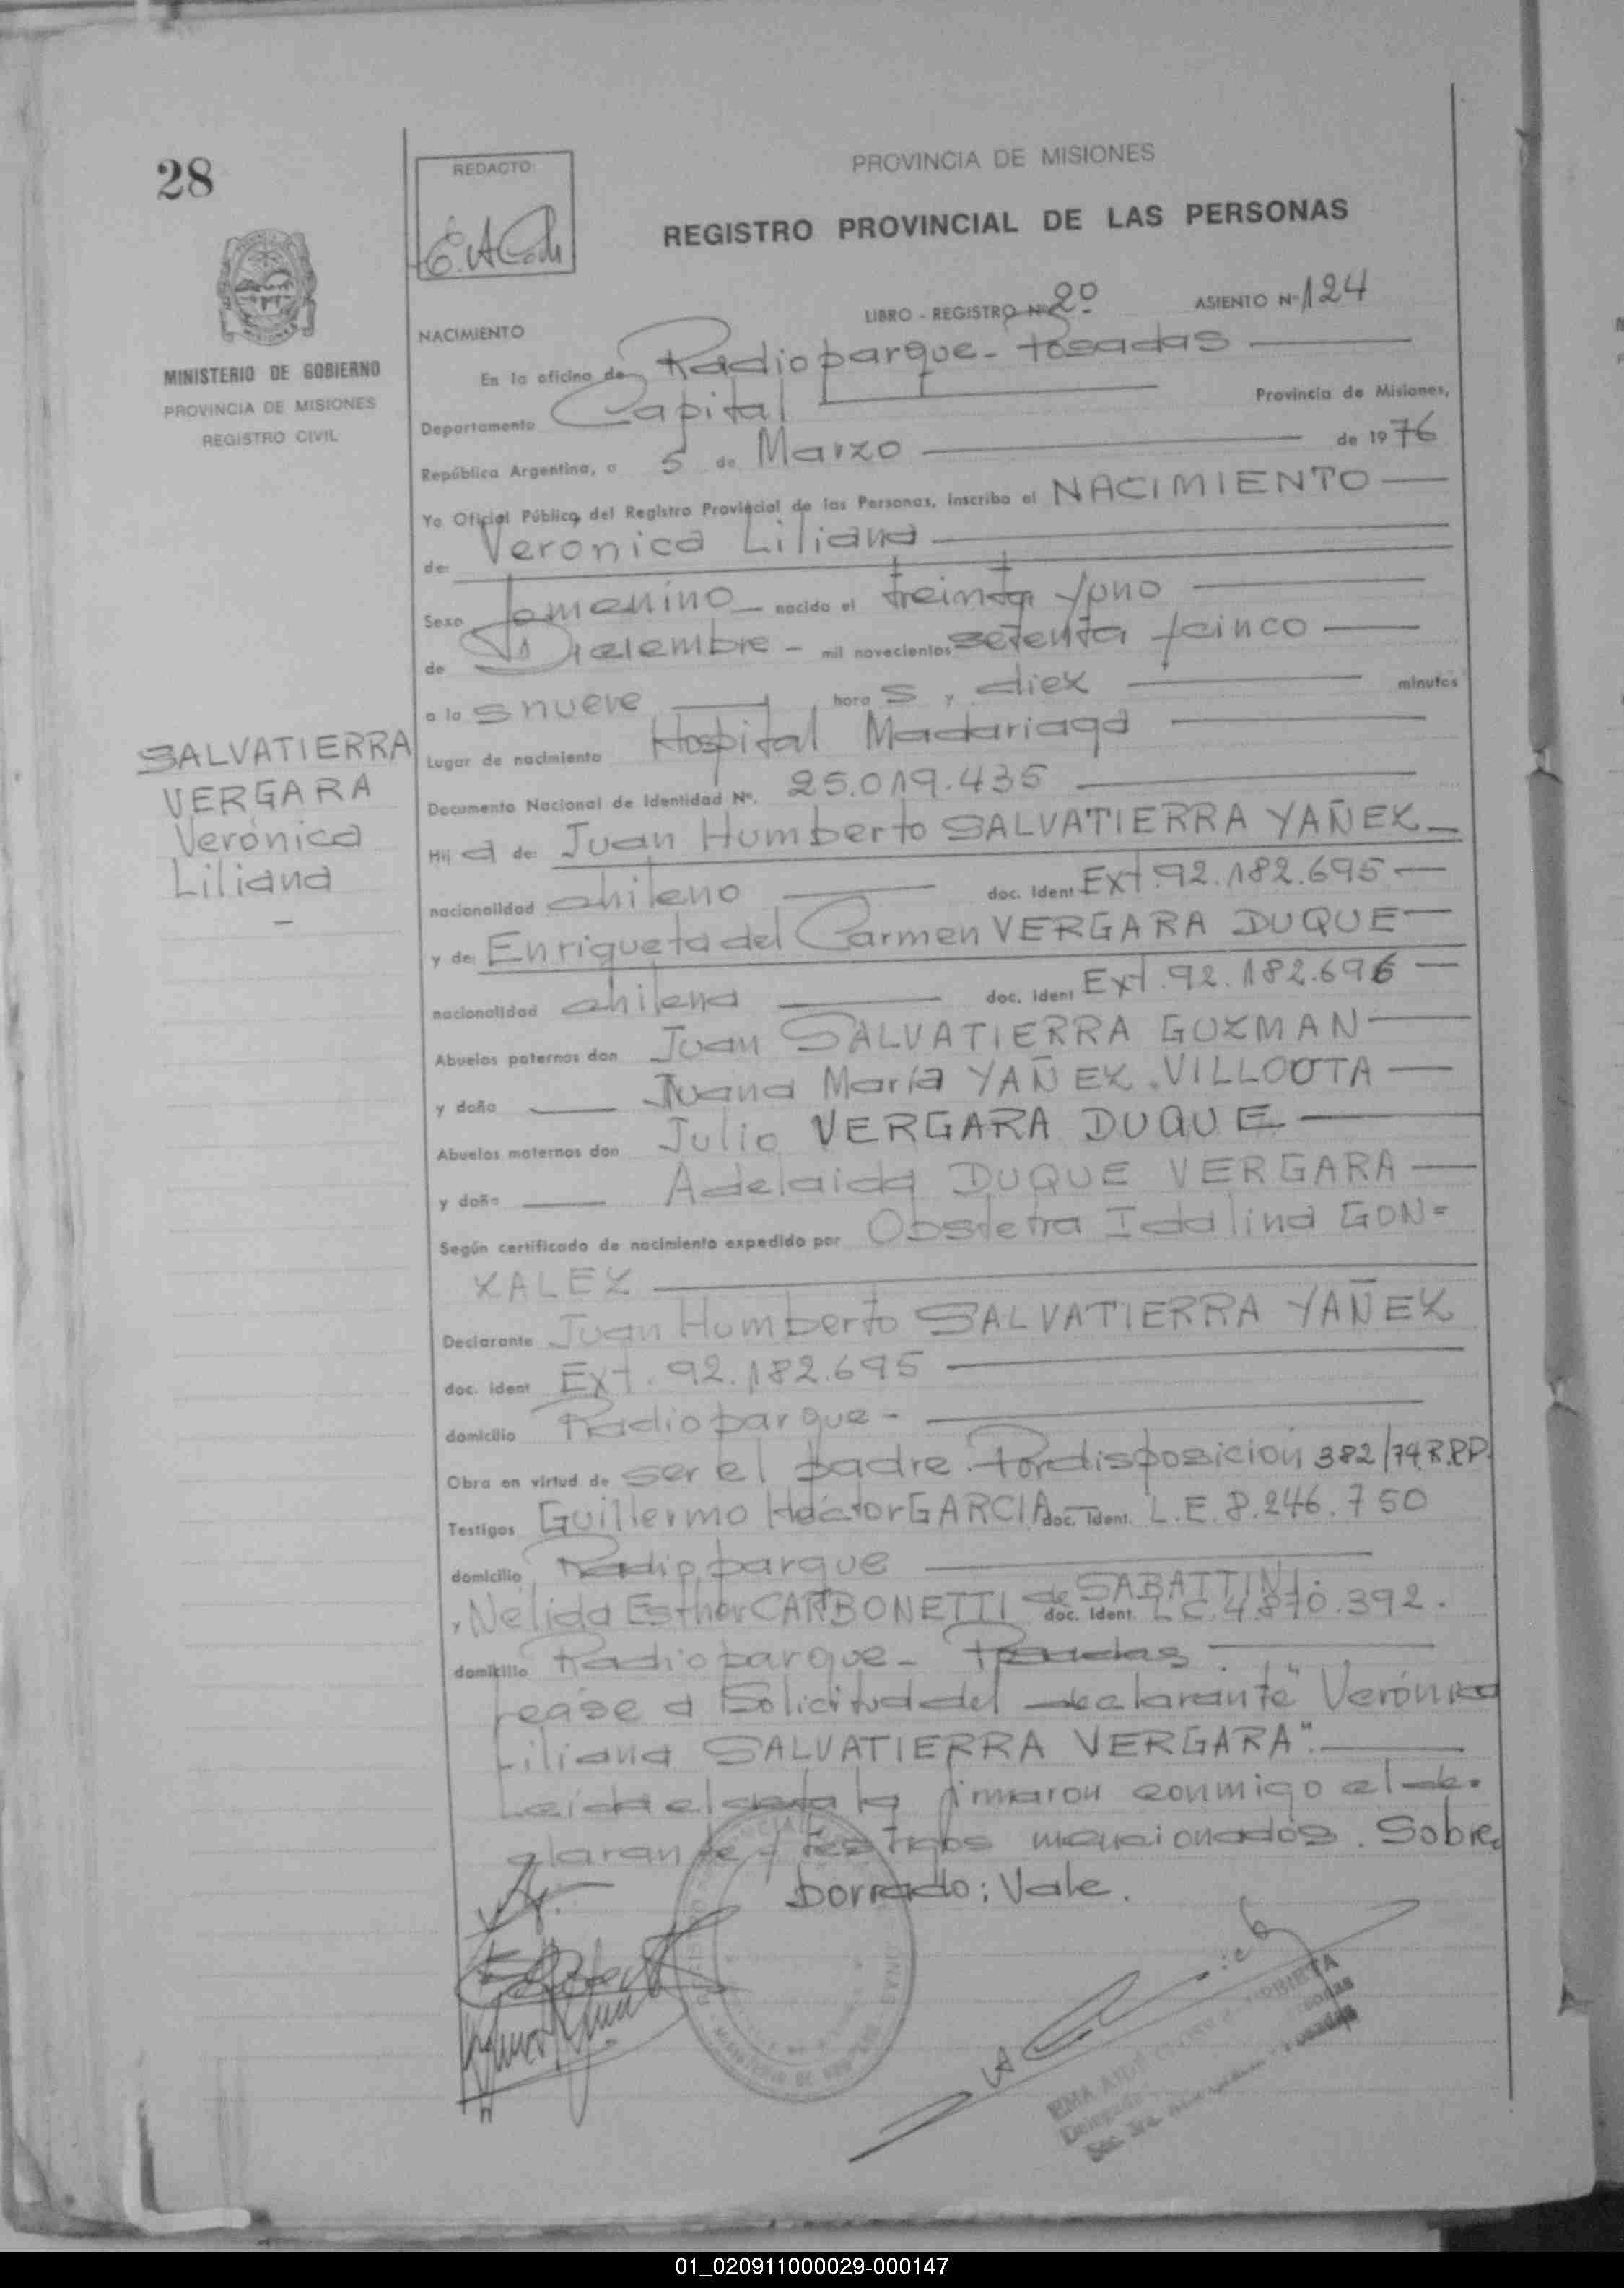 28
REDACTO:
PROVINCIA DE MISIONES
REGISTRO PROVINCIAL DE LAS PERSONAS
LIBRO - REGISTRO Nº 2º ASIENTO Nº 124
MINISTERIO DE GOBIERNO
PROVINCIA DE MISIONES
REGISTRO CIVIL
NACIMIENTO
En la oficina de Radioparque - Posadas
Departamento Capital Provincia de Misiones,
República Argentina, a 5 de Marzo de 1976
Yo Oficial Público, del Registro Provincial de las Personas, inscribo el NACIMIENTO
de: Veronica Liliana
Sexo femenino nacido el treinta y uno
de Diciembre - mil novecientos setenta y cinco
a las nueve horas y diez minutos
Lugar de nacimiento Hospital Madariaga
Documento Nacional de Identidad Nº. 25.019.435
SALVATIERRA
VERGARA
Verónica
Liliana
Hija de: Juan Humberto SALVATIERRA YAÑEZ
nacionalidad chileno doc. Ident Ext. 92.182.695
y de: Enriqueta del Carmen VERGARA DUQUE
nacionalidad chilena doc. Ident Ext. 92.182.696
Abuelos paternos don Juan SALVATIERRA GUZMAN
y doña Juana María YAÑEZ VILLOOTA
Abuelos maternos don Julio VERGARA DUQUE
y doña Adelaida DUQUE VERGARA
Según certificado de nacimiento expedido por Obstetra Idalina GON=
ZALEZ
Declarante Juan Humberto SALVATIERRA YAÑEZ
doc. ident Ext. 92.182.695
domicilio Radioparque -
Obra en virtud de ser el padre. Por disposición 382/74 R.P.P.
Testigos Guillermo Héctor GARCIA doc. Ident. L.E. 8.246.750
domicilio Radioparque
y Nelida Esther CARBONETTI de SABATTINI doc. Ident. L.C. 4.870.392.
domicilio Radioparque - Posadas
Lease a Solicitud del declarante "Verónica
Liliana SALVATIERRA VERGARA".
Leída el acta la firmaron conmigo el de-
clarante y testigos mencionados. Sobre
borrado: Vale.
01_020911000029-000147